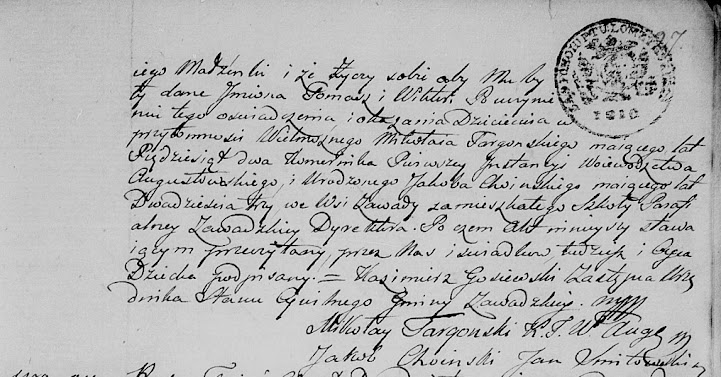 iego Małżenki i że życzy sobie aby Mu by
ły dane Imiona Tomasz i Wiktor. Po uczynie
niu tego oswiadczenia i okazania Dziecięcia w
przytomnosci Wielmożnego Mikołaia Targonskiego maiącego lat
Pięćdziesiąt dwa Komornika Pierwszey Instancyi Woiewodztwa
Augustowskiego, i Urodzonego Jakoba Choinskiego maiącego lat
Dwadzieścia trzy we Wsi Zawady zamieszkałego Szkoły Paraf
alney Zawadzkiey Dyrektora. Poczem Akt ninieyszy stawa
iącym przeczytany, przez Nas i swiadków, tudzież i Oyca
Dziecka podpisany. = Kazimierz Gosiewski Zastępca Urzę
dnika Stanu Cywilnego Gminy Zawadzkiey.
Mikołay Targonski K. T. W Aug
Jakob Choinski Jan Smitowski